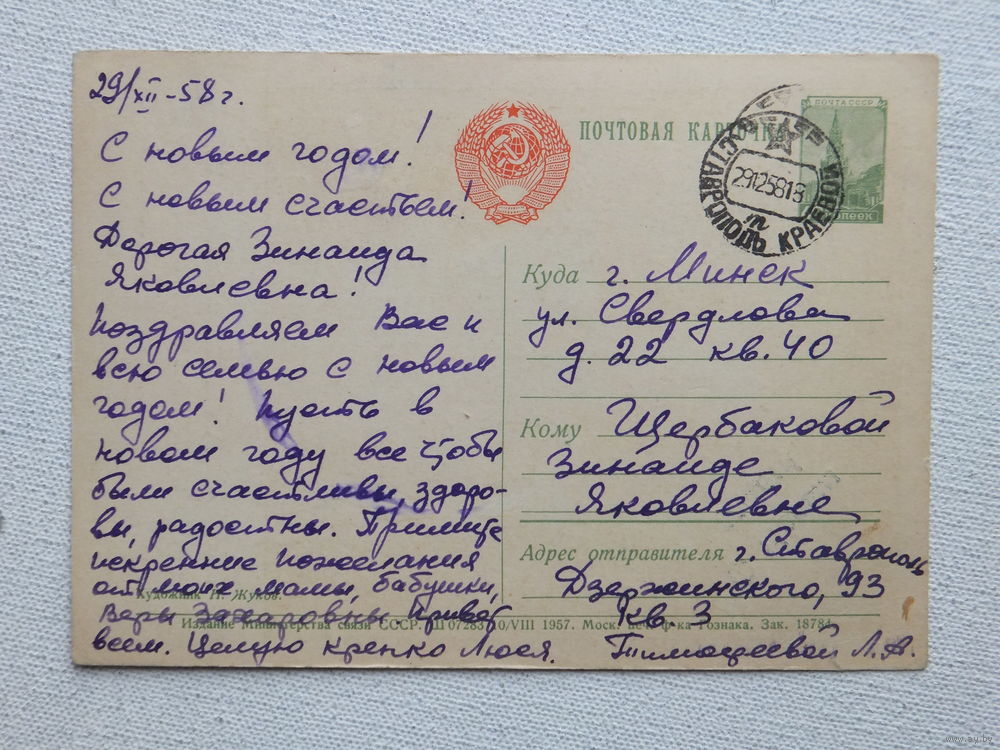 29/XII-58 г.
С новым годом!
С новым счастьем!
Дорогая Зинаида
Яковлевна!
Поздравляем Вас и
всю семью с новым
годом! Пусть в
новом году все чтобы
были счастливы, здоро-
вы, радостны. Примите
искренние пожелания
от моих мамы, бабушки,
Веры Захаровны. Привет
всем. Целую крепко Люся.
Художник Н. Жуков.
ПОЧТОВАЯ КАРТОЧКА
ПОЧТА СССР
КОПЕЕК
СТАВРОПОЛЬ КРАЕВОЙ
29125818
Куда г. Минск
ул. Свердлова
д. 22 кв. 40
Кому Щербаковой
Зинаиде
Яковлевне
Адрес отправителя г. Ставрополь
Дзержинского, 93
кв. 3
Тимофеевой Л. А.
Издание Министерства связи СССР. Ш 07283 10/VIII 1957. Моск. печ. ф-ка Гознака. Зак. 18784
www.ay.by